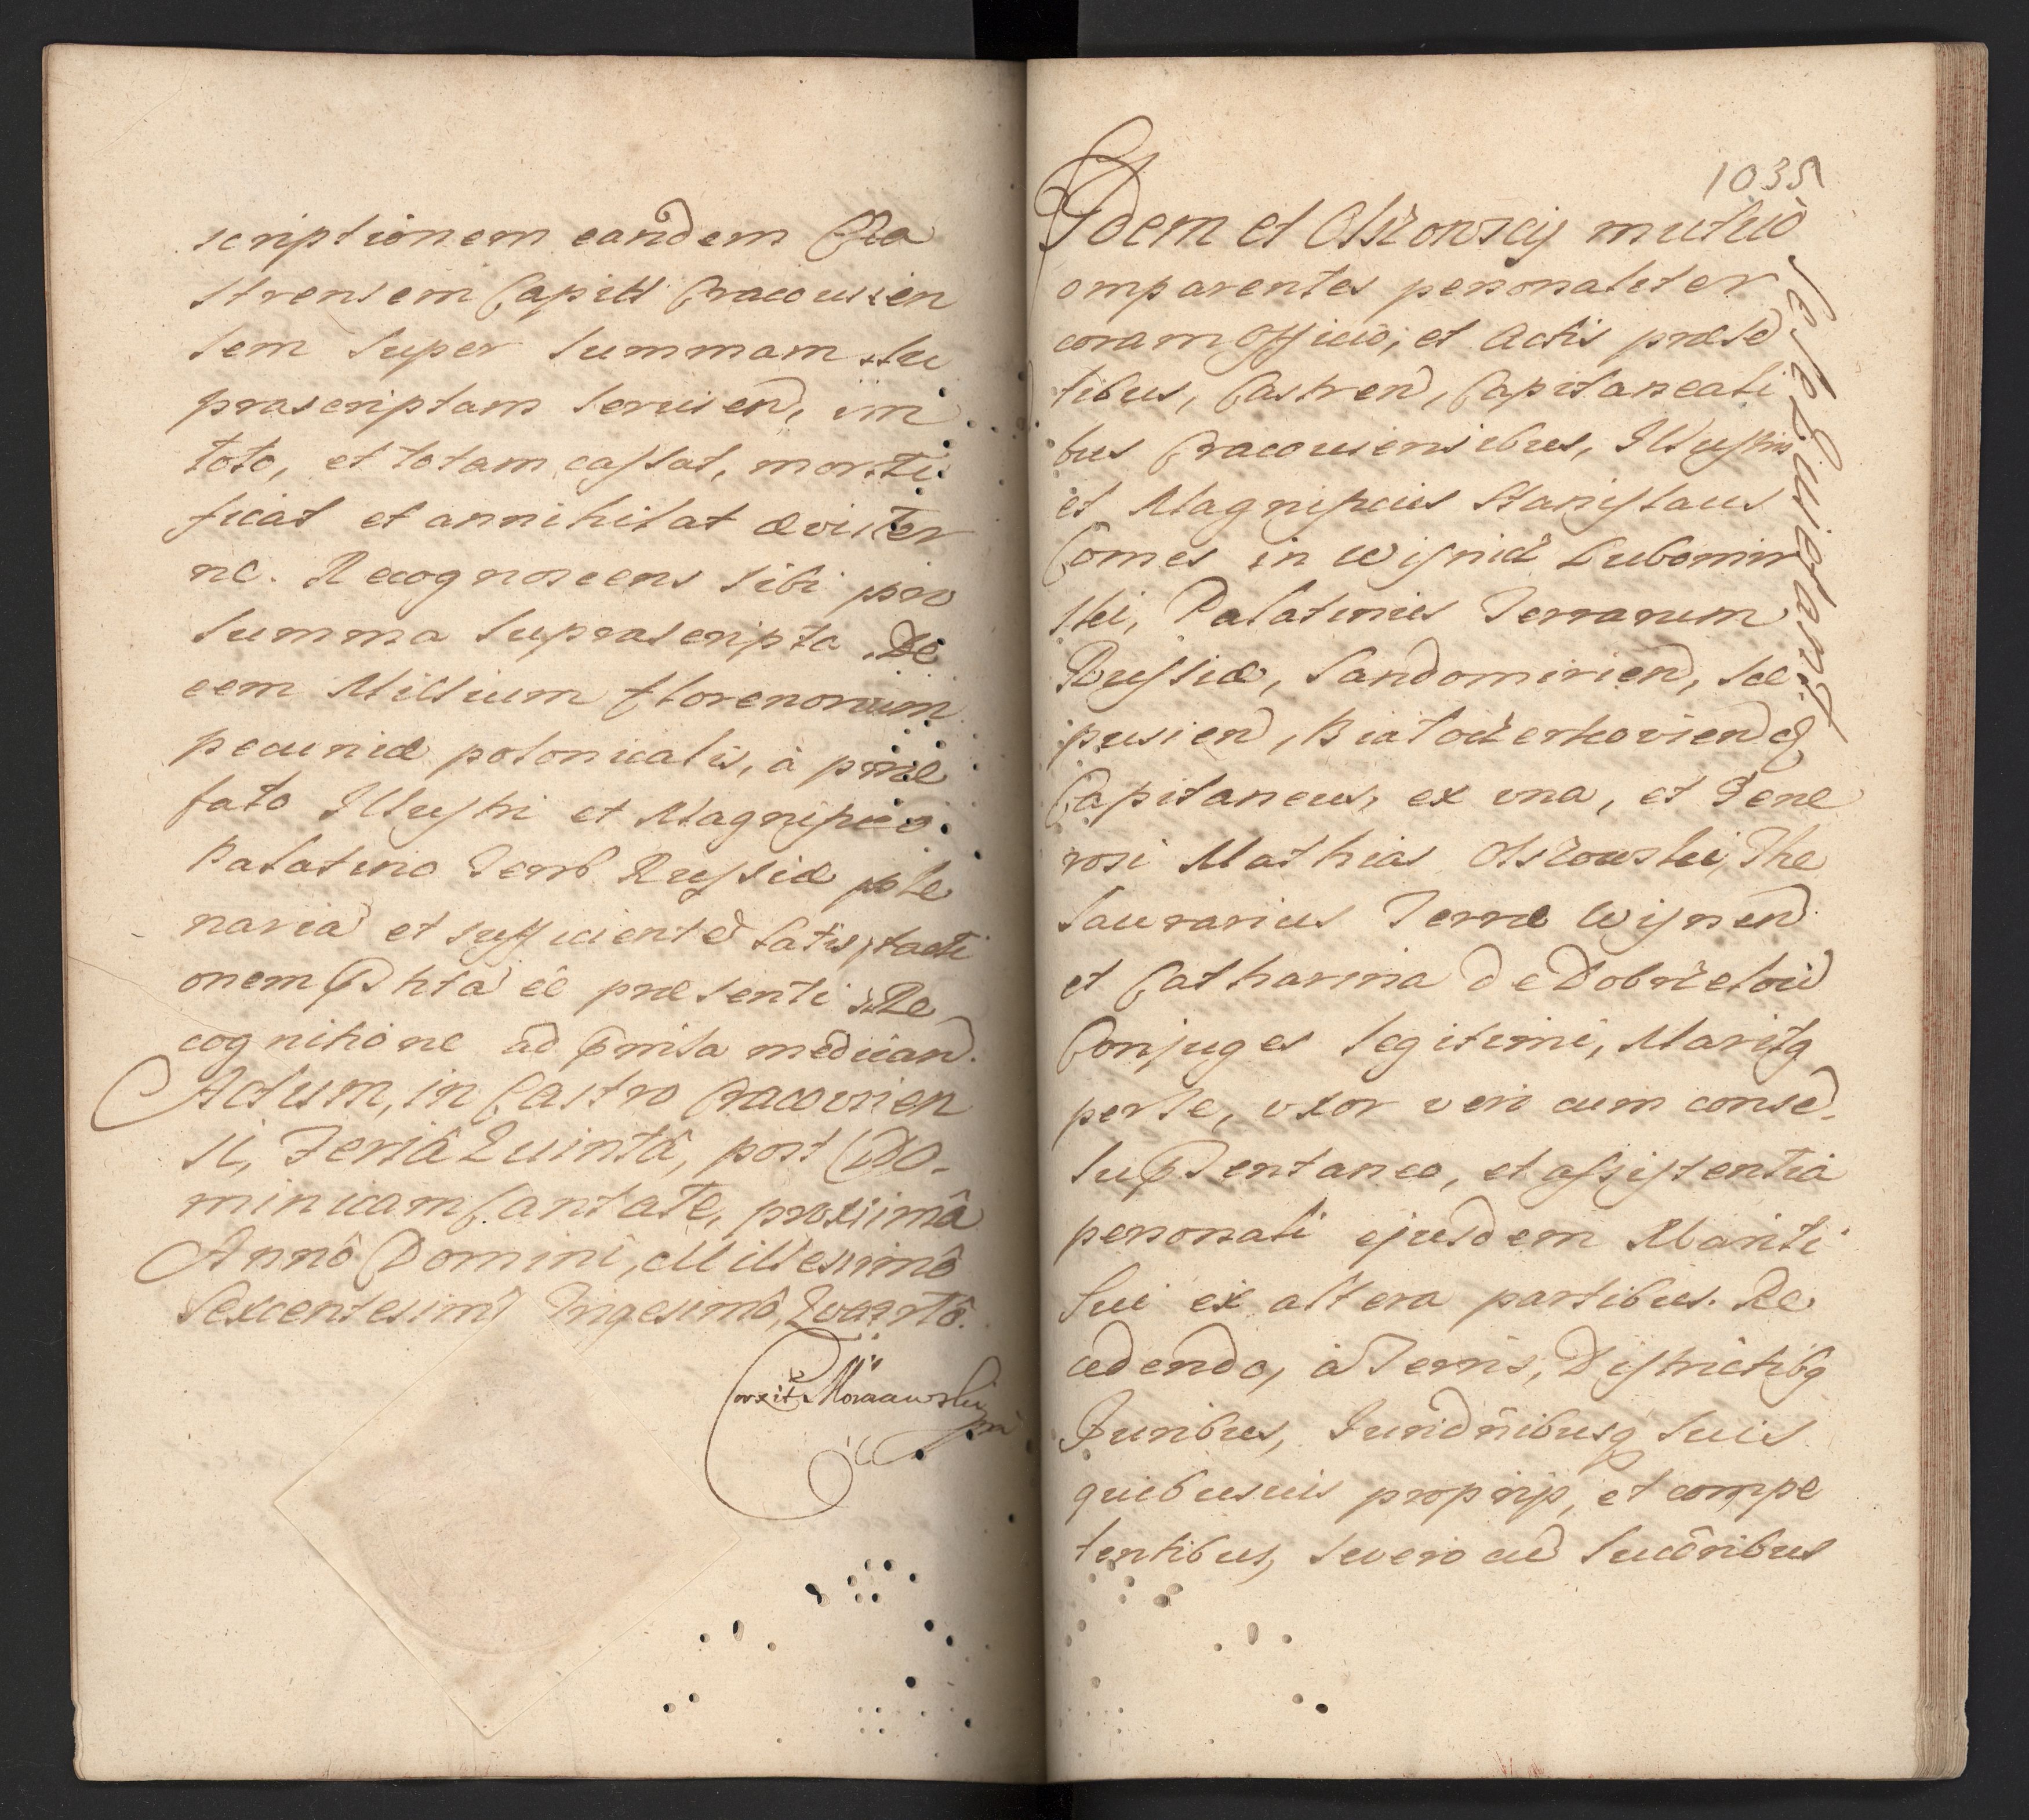 scriptionem eandem Ca
strensem Capitl Cracouien
sem super summam su
prascriptam seruien, in
toto, et totam cassat, morti
ficat et annihilat æviter
ne. Recognoscens sibi pro
summa suprascripta De
cem Millium florenorum
pecuniæ polonicalis, à præ
fato Illustri et Magnifico
Palatino Terr Russiæ ple
naria et sufficiente satisfacti
onem esse præsenti Re
cognitione ad median.
Actum, in Castro Cracovien
si, Feriâ Quintâ, post Do-
minicam Cantate, proximâ
Annô Domini, Millesimô
Sexcentesimô Trigesimô, Quartô.
Corxit Moraawski
mp
1035
Idem et Ossowscy mutuò
omparentes personaliter
coram Officio, et Actis præsē
tibus, Castren, Capitaneali
bus Cracouiensibus, Illustris
et Magnificus Stanislaus
Comes in Wisnicz Lubomir
ski, Palatinus Terrarum
Russiæ, Sandomirien, Sce
pusien, Białocerkovienq
Capitaneus, ex vna, et Gene
rosi Mathias Ossowski, The
saurarius Terræ Wisnen
et Catharina De Dobrzelow
Conjuges legitimi, Maritq
perse, vxor vero cum consē-
su sentaneo, et assistentia
personali ejusdem Mariti
sui ex altera partibus. Re
cedendo, à Terris, Districtibq
Juribus, Juridñibusq suis
quibusuis proprijs, et compe
tentibus, se vero cū succôribus
Se se quietant